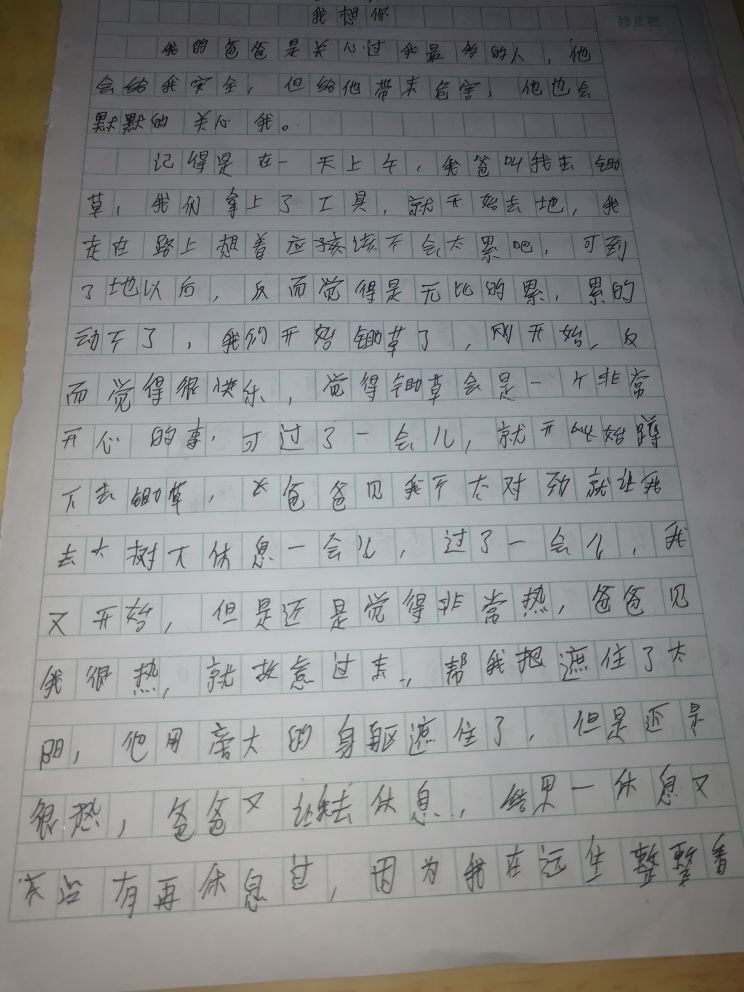 我想你
修正栏
我的爸爸是关心过我最多的人，他
会给我安全，但给他带来危害，他也会
默默的关心我。
记得是在一天上午，我爸叫我去锄
草，我们拿上了工具，就开始去地，我
走在路上想着应该该不会太累吧，可到
了地以后，反而觉得是无比的累，累的
动不了，我们开始锄草了，刚开始，反
而觉得很快乐，觉得锄草会是一个非常
开心的事，可过了一会儿，就开始蹲
下去锄草，爸爸见我不太对劲就让我
去大树下休息一会儿，过了一会儿，我
又开始，但是还是觉得非常热，爸爸见
我很热，就故意过来，帮我把遮住了太
阳，他用高大的身躯遮住了，但是还是
很热，爸爸又让我去休息，结果一休息又
有再休息过，因为我在远坐整整看